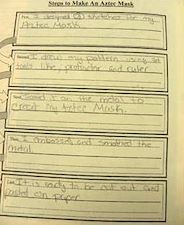 Steps to Make An Aztec Mask
First, I designed (2) sketches for my
Aztec Mask.
Second I drew my pattern using
tools like protractor and ruler
used it on the metal to
creat my Aztec Mask.
I embossed and smothed the
metal.
It is ready to be cut out and
on paper